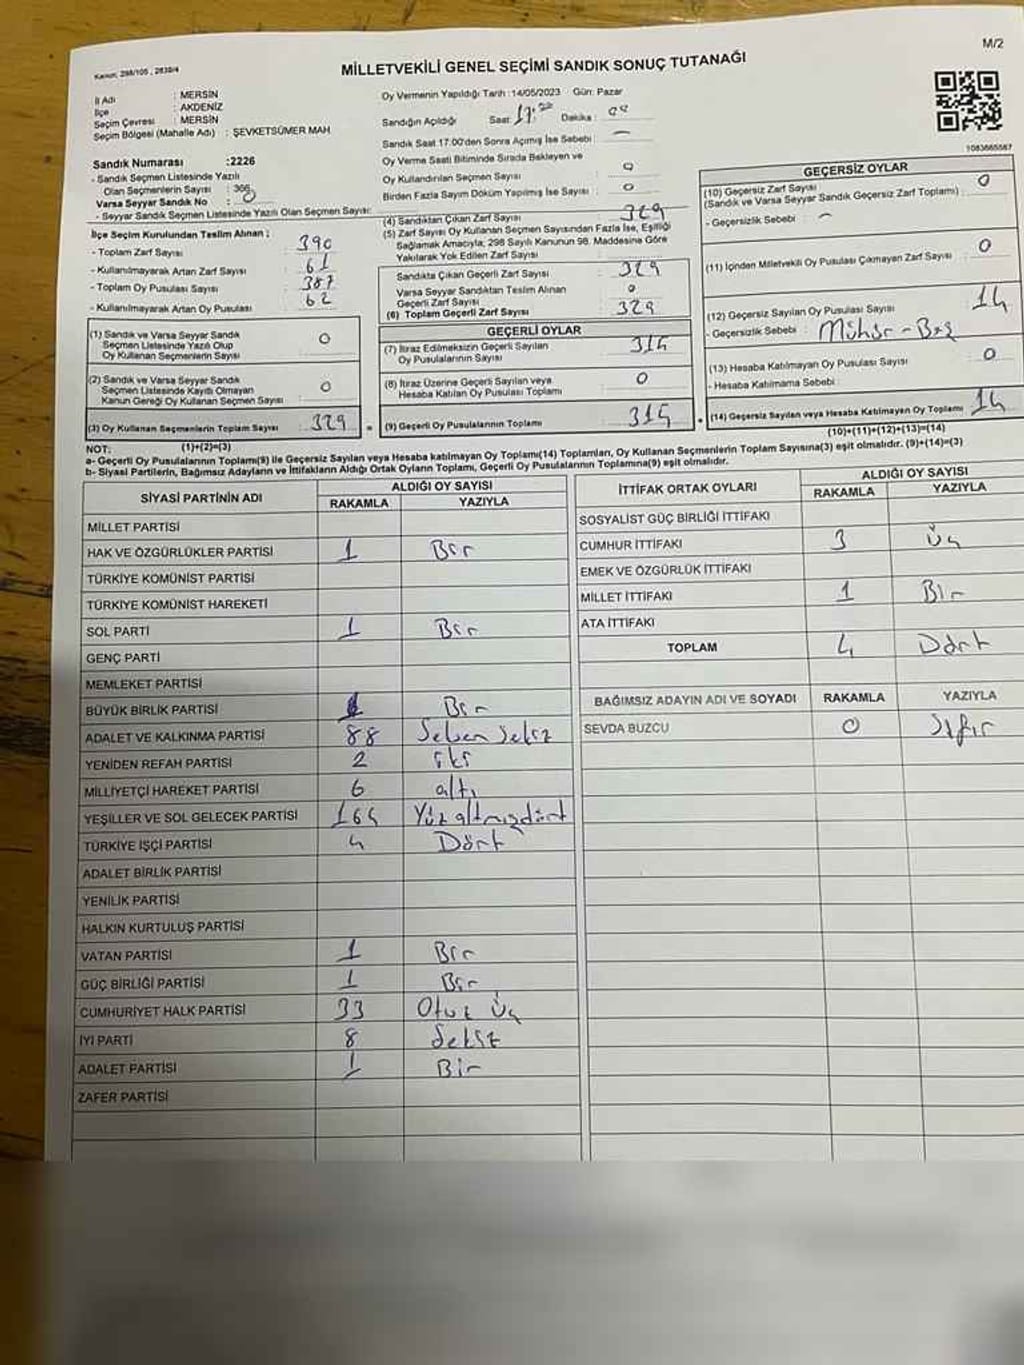 M/2
Kanun: 298/105 , 2839/4
MİLLETVEKİLİ GENEL SEÇİMİ SANDIK SONUÇ TUTANAĞI
İl Adı : MERSİN
İlçe : AKDENİZ
Seçim Çevresi : MERSİN
Seçim Bölgesi (Mahalle Adı) : ŞEVKETSÜMER MAH.
Sandık Numarası :2226
- Sandık Seçmen Listesinde Yazılı
Olan Seçmenlerin Sayısı : 366
Varsa Seyyar Sandık No : 0
- Seyyar Sandık Seçmen Listesinde Yazılı Olan Seçmen Sayısı:
İlçe Seçim Kurulundan Teslim Alınan :
- Toplam Zarf Sayısı : 390
- Kullanılmayarak Artan Zarf Sayısı : 61
- Toplam Oy Pusulası Sayısı : 387
- Kullanılmayarak Artan Oy Pusulası : 62
(1) Sandık ve Varsa Seyyar Sandık
Seçmen Listesinde Yazılı Olup
Oy Kullanan Seçmenlerin Sayısı : 0
(2) Sandık ve Varsa Seyyar Sandık
Seçmen Listesinde Kayıtlı Olmayan
Kanun Gereği Oy Kullanan Seçmen Sayısı : 0
(3) Oy Kullanan Seçmenlerin Toplam Sayısı : 329
(1)+(2)=(3)
Oy Vermenin Yapıldığı Tarih :14/05/2023 Gün: Pazar
Sandığın Açıldığı Saat : 17:00 Dakika :
Sandık Saat 17:00'den Sonra Açılmış İse Sebebi : —
Oy Verme Saati Bitiminde Sırada Bekleyen ve
Oy Kullandırılan Seçmen Sayısı : 0
Birden Fazla Sayım Döküm Yapılmış İse Sayısı : 0
(4) Sandıktan Çıkan Zarf Sayısı : 329
(5) Zarf Sayısı Oy Kullanan Seçmen Sayısından Fazla İse, Eşitliği
Sağlamak Amacıyla; 298 Sayılı Kanunun 98. Maddesine Göre
Yakılarak Yok Edilen Zarf Sayısı :
Sandıkta Çıkan Geçerli Zarf Sayısı : 329
Varsa Seyyar Sandıktan Teslim Alınan
Geçerli Zarf Sayısı : 0
(6) Toplam Geçerli Zarf Sayısı : 329
GEÇERLİ OYLAR
(7) İtiraz Edilmeksizin Geçerli Sayılan
Oy Pusulalarının Sayısı : 315
(8) İtiraz Üzerine Geçerli Sayılan veya
Hesaba Katılan Oy Pusulası Toplamı : 0
(9) Geçerli Oy Pusulalarının Toplamı : 315
1083665587
GEÇERSİZ OYLAR
(10) Geçersiz Zarf Sayısı
(Sandık ve Varsa Seyyar Sandık Geçersiz Zarf Toplamı) : 0
- Geçersizlik Sebebi : —
(11) İçinden Milletvekili Oy Pusulası Çıkmayan Zarf Sayısı : 0
(12) Geçersiz Sayılan Oy Pusulası Sayısı : 14
- Geçersizlik Sebebi : Mühür - Boş
(13) Hesaba Katılmayan Oy Pusulası Sayısı : 0
- Hesaba Katılmama Sebebi :
(14) Geçersiz Sayılan veya Hesaba Katılmayan Oy Toplamı : 14
(10)+(11)+(12)+(13)=(14)
NOT:
a- Geçerli Oy Pusulalarının Toplamı(9) ile Geçersiz Sayılan veya Hesaba katılmayan Oy Toplamı(14) Toplamları, Oy Kullanan Seçmenlerin Toplam Sayısına(3) eşit olmalıdır. (9)+(14)=(3)
b- Siyasi Partilerin, Bağımsız Adayların ve İttifakların Aldığı Ortak Oyların Toplamı, Geçerli Oy Pusulalarının Toplamına(9) eşit olmalıdır.
SİYASİ PARTİNİN ADI ALDIĞI OY SAYISI
RAKAMLA YAZIYLA
MİLLET PARTİSİ
HAK VE ÖZGÜRLÜKLER PARTİSİ 1 Bir
TÜRKİYE KOMÜNİST PARTİSİ
TÜRKİYE KOMÜNİST HAREKETİ
SOL PARTİ 1 Bir
GENÇ PARTİ
MEMLEKET PARTİSİ
BÜYÜK BİRLİK PARTİSİ 1 Bir
ADALET VE KALKINMA PARTİSİ 88 Seksen Sekiz
YENİDEN REFAH PARTİSİ 2 iki
MİLLİYETÇİ HAREKET PARTİSİ 6 altı
YEŞİLLER VE SOL GELECEK PARTİSİ 164 Yüzaltmışdört
TÜRKİYE İŞÇİ PARTİSİ 4 Dört
ADALET BİRLİK PARTİSİ
YENİLİK PARTİSİ
HALKIN KURTULUŞ PARTİSİ
VATAN PARTİSİ 1 Bir
GÜÇ BİRLİĞİ PARTİSİ 1 Bir
CUMHURİYET HALK PARTİSİ 33 Otuz Üç
İYİ PARTİ 8 Sekiz
ADALET PARTİSİ 1 Bir
ZAFER PARTİSİ
İTTİFAK ORTAK OYLARI ALDIĞI OY SAYISI
RAKAMLA YAZIYLA
SOSYALİST GÜÇ BİRLİĞİ İTTİFAKI
CUMHUR İTTİFAKI 3 Üç
EMEK VE ÖZGÜRLÜK İTTİFAKI
MİLLET İTTİFAKI 1 Bir
ATA İTTİFAKI
TOPLAM 4 Dört
BAĞIMSIZ ADAYIN ADI VE SOYADI RAKAMLA YAZIYLA
SEVDA BUZCU 0 Sıfır